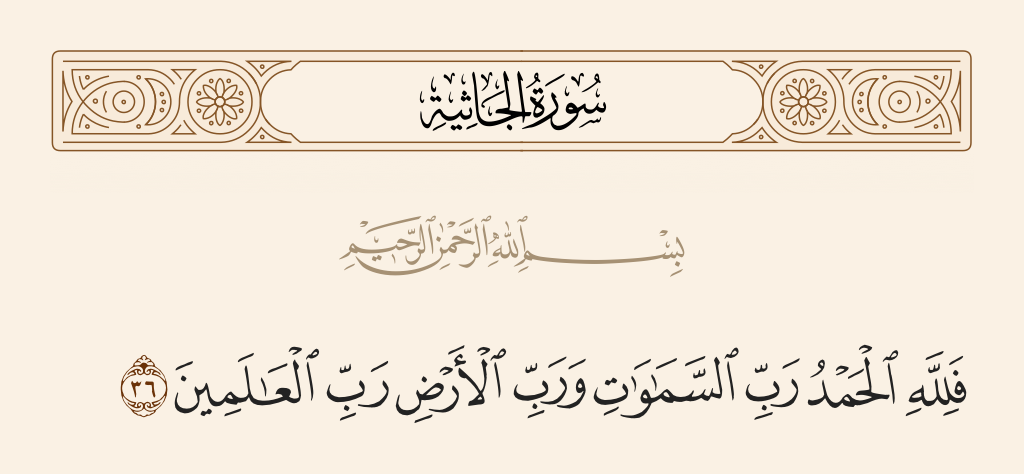 سُورَةُ الجَاثِيَةِ
بِسْمِ ٱللَّهِ ٱلرَّحْمَٰنِ ٱلرَّحِيمِ
فَلِلَّهِ ٱلْحَمْدُ رَبِّ ٱلسَّمَٰوَٰتِ وَرَبِّ ٱلْأَرْضِ رَبِّ ٱلْعَٰلَمِينَ ٣٦